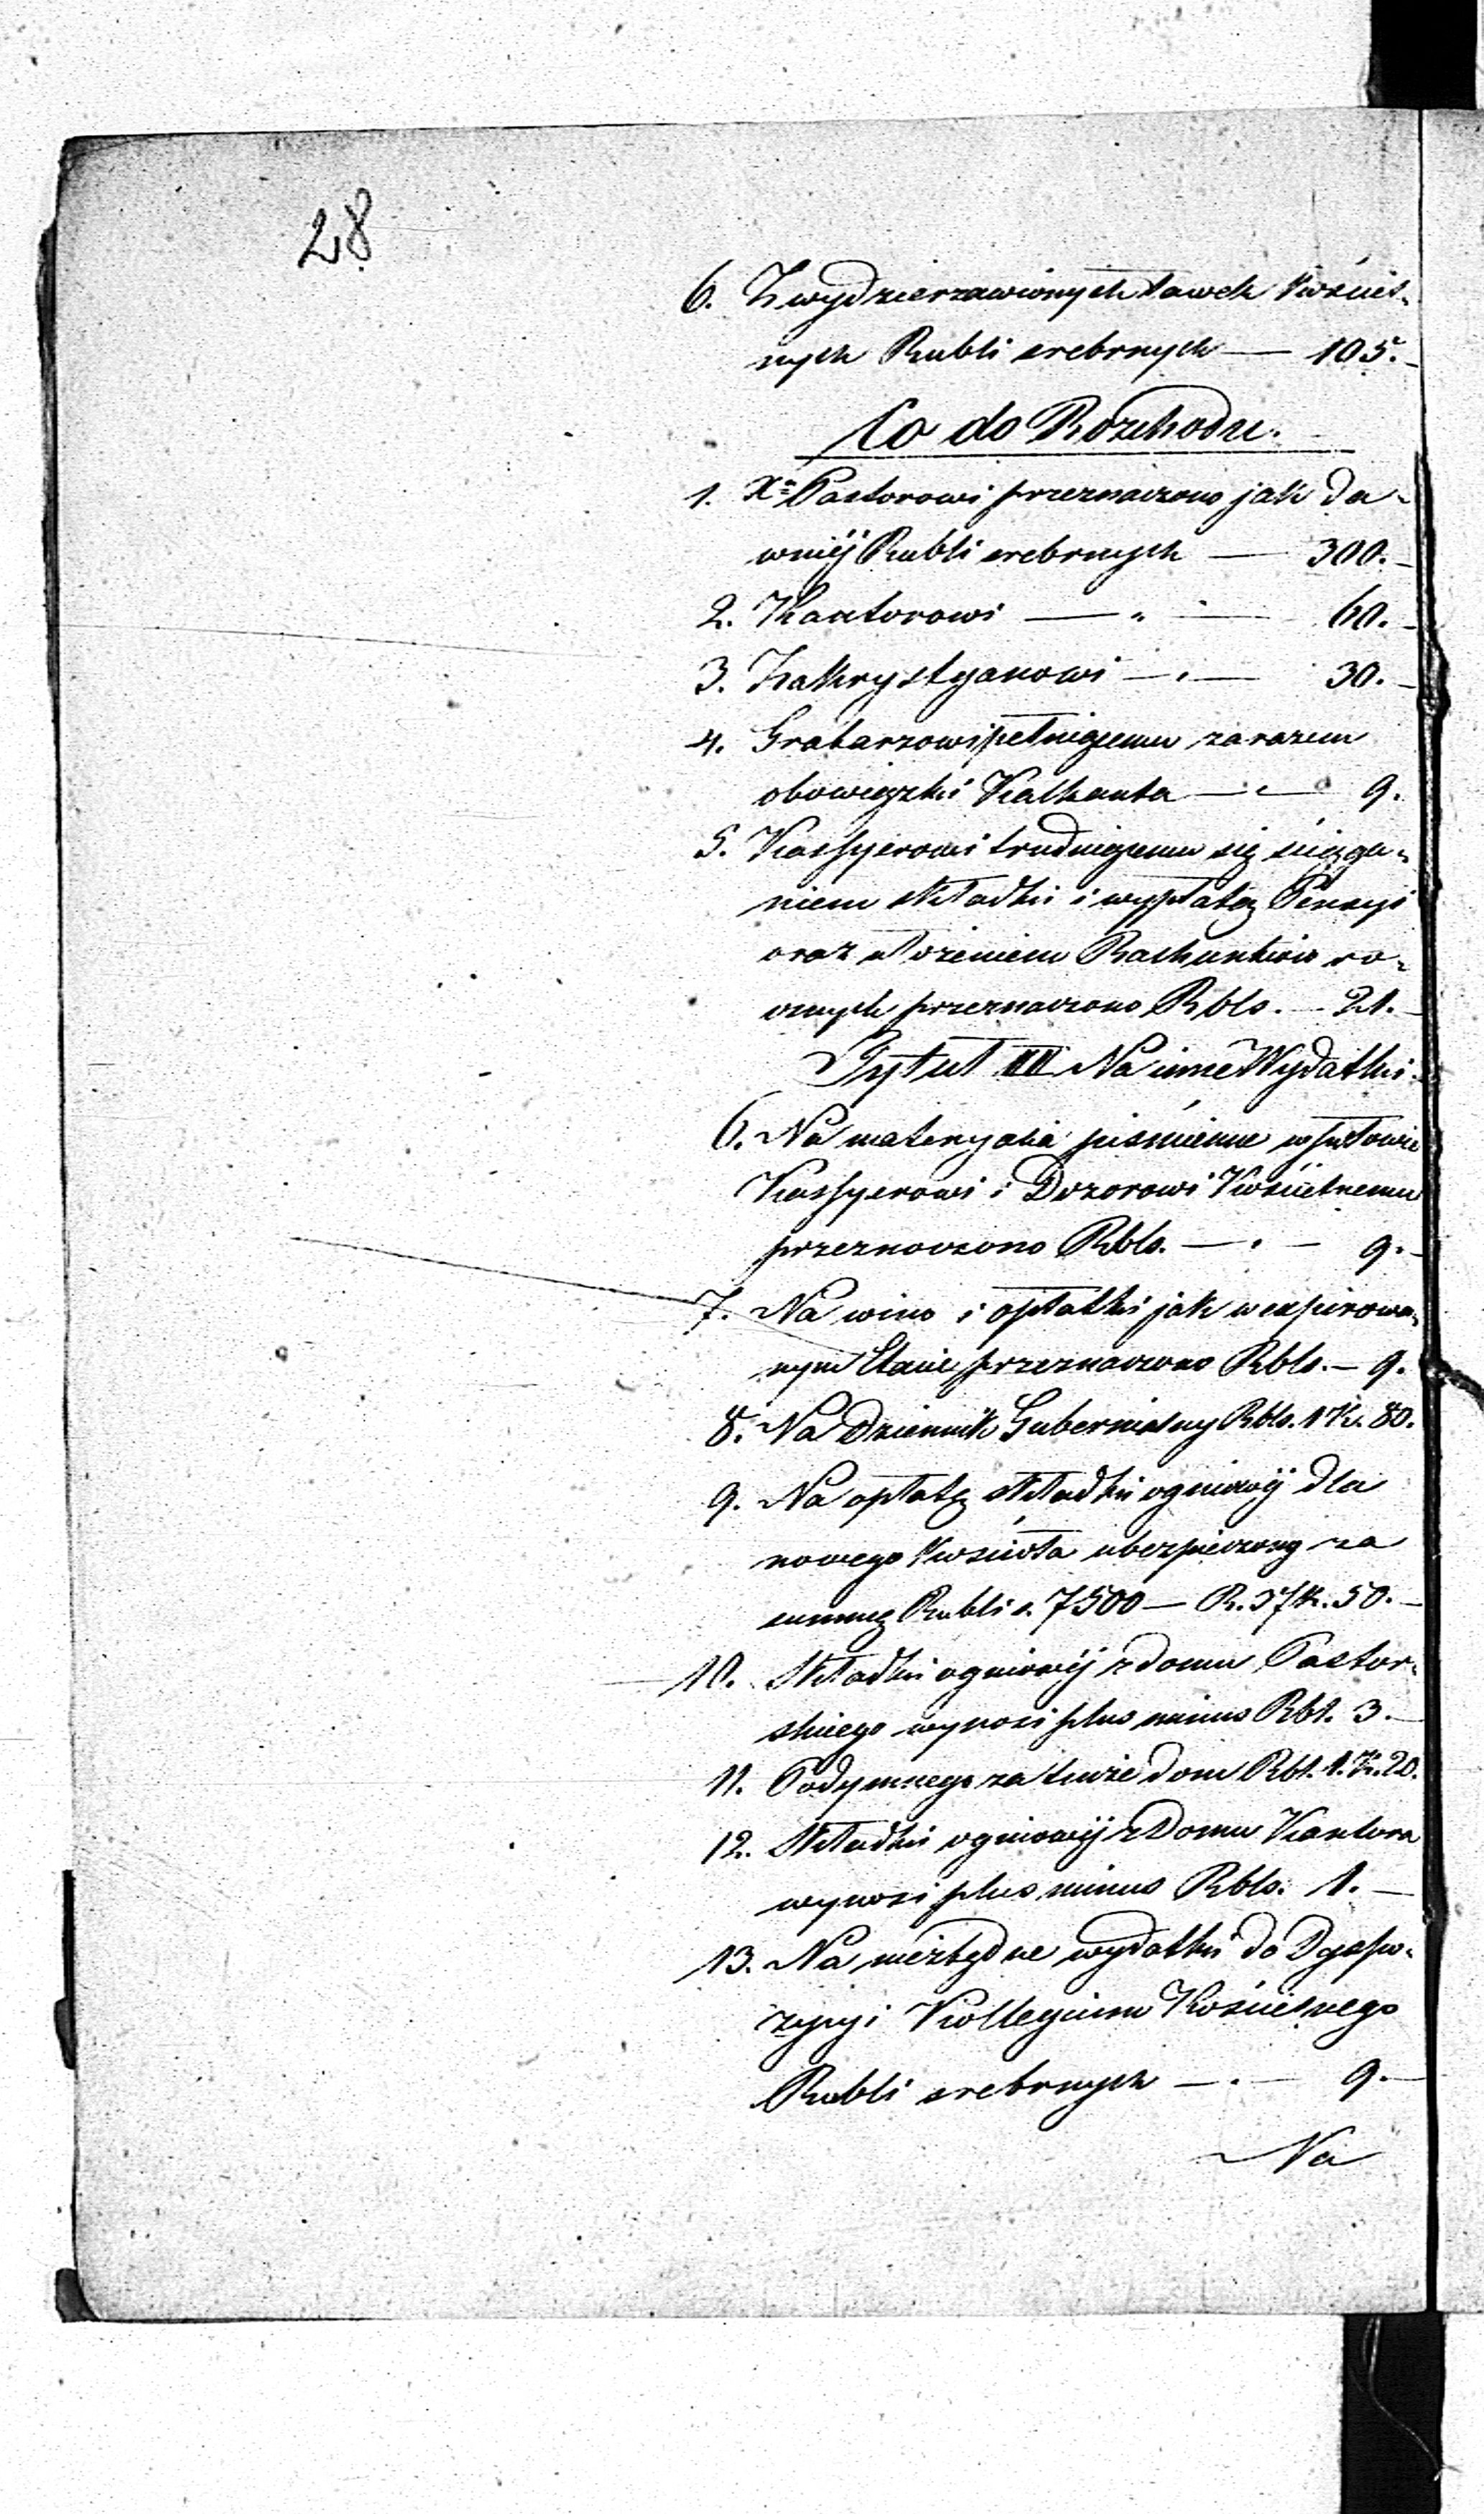 28
6. Z wydzierzawionych ławek Kościel-
nych Rubli srebrnych — 105.
Co do Rozchodu.
1. Xs Pastorowi przeznaczono jak da-
wniéj Rubli srebrnych — 300.
2. Kantorowi — " — 60.
3. Zakrystyanowi — " — 30.
4. Grabarzowi pełniącemu zarazem
obowiązki Kalkanta — " — 9.
5. Kassyerowi trudniącemu się ściąga-
niem składki i wypłatą Pensyi
oraz ułożeniem Rachunków ro-
cznych przeznaczono Rbls. — 21.
Tytuł III Na inne Wydatki.
6. Na materyalia piśmienne
Kassyerowi i Dozorowi Kościelnemu
przeznaczono Rbls. — " — 9.
7. Na wino i opłatki jak w expirowa-
nym Etacie przeznaczono Rbls. — 9.
8. Na Dziennik Gubernialny Rbls. 1 K. 80.
9. Na opłatę składki ogniowéj dla
nowego Kościoła ubezpieczony na
summę Rubli s. 7500 — R. 37 K. 50.
10. Składki ogniowéj z domu Pastor-
skiego wynosi plus minus Rbl. 3.
11. Podymnego za tenże dom Rbl. 1. K. 20.
12. Składki ogniowéj z Domu Kantora
wynosi plus minus Rbls. 1.
13. Na niezbędne wydatki do Dyspo-
zycyi Kollegium Kościelnego
Rubli srebrnych — " — 9.
Na